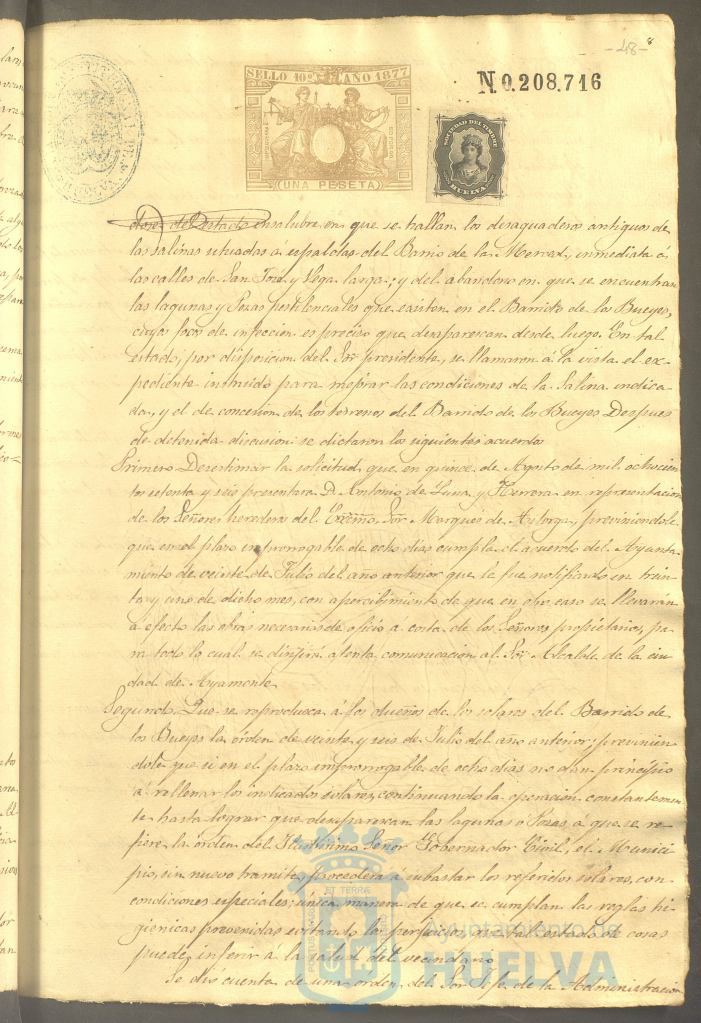 -48-
SELLO 10º AÑO 1877
UNA PESETA
N. 0.208.716
SOCIEDAD DEL TIMBRE
HUELVA
insalubre en que se hallan los desaguaderos antiguos de
las salinas situadas á espaldas del Barrio de la Merced, inmediata á
las calles de San José y Vega larga; y del abandono en que se encuentran
las lagunas y Pozas pestilenciales que existen en el Barrido de los Bueyes,
cuyos focos de infeccion es preciso que desaparezcan desde luego. En tal
estado, por disposicion del Sor presidente, se llamaron á la vista el ex-
pediente instruido para mejorar las condiciones de la Salina indica-
da, y el de concesion de los terrenos del Barrido de los Bueyes Despues
de detenida discusion se dictaron los siguientes acuerdos
Primero Desestimar la solicitud que en quince de Agosto de mil ochocien-
tos setenta y seis presentara D. Antonio de Luna y Herrera en representacion
de los Señores herederos del Excmo. Sor Marques de Astorga, previniendole
que en el plazo improrrogable de ocho dias cumpla el acuerdo del Ayunta-
miento de veinte de Julio del año anterior que le fue notificado en trein-
ta y uno de dicho mes, con apercibimiento de que en otro caso se llevarán
á efecto las obras necesarias de oficio a costa de los Señores propietarios, pa-
ra todo lo cual se dirijirá atenta comunicacion al Sor Alcalde de la ciu-
dad de Ayamonte
Segundo Que se reproduzca á los dueños de los solares del Barrido de
los Bueyes la órden de veinte y seis de Julio del año anterior; previnien-
dole que si en el plazo improrrogable de ocho dias no dan principio
a rellenar los indicados solares, continuando la operacion constantemen-
te hasta lograr que desaparezcan las lagunas ó Pozas a que se re-
fiere la órden del Ilustrisimo Señor Gobernador Civil, el Munici-
pio, sin nuevo tramite, procederá a subastar los referidos solares, con
condiciones especiales; única manera de que se cumplan las reglas hi-
gienicas prevenidas evitando los perjuicios que tal estado de cosas
puede inferir á la salud del vecindario
Se dió cuenta de una orden del Sor Jefe de la Administracion
Ayuntamiento de
HUELVA